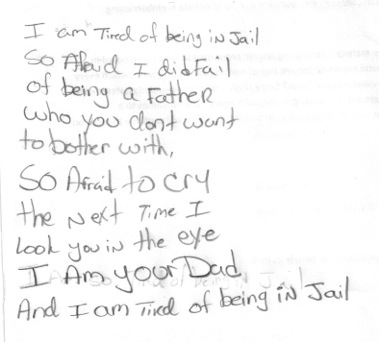 I am Tired of being iN Jail
So Afraid I did Fail
of being a FatheR
who you dont want
to bother with,
SO Afraid to cry
the Next Time I
Look you in the eye
I Am your Dad,
And I am Tired of being iN Jail